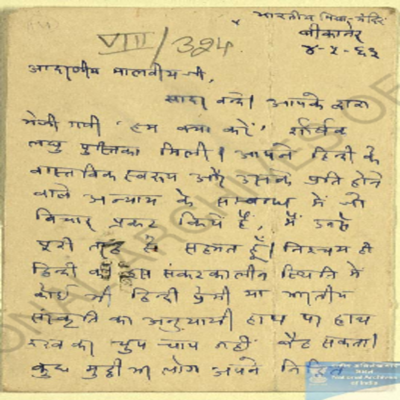 भारतीय विद्या-मंदिर
बीकानेर
४-५-६३
VIII/324
आदरणीय मालवीय जी,
सादर वन्दे। आपके द्वारा
भेजी गयी 'हम क्या करें' शीर्षक
लघु पुस्तिका मिली। आपने हिन्दी के
वास्तविक स्वरूप और उसके प्रति होने
वाले अन्याय के सम्बन्ध में जो
विचार प्रकट किये हैं, मैं उनसे
पूरी तरह से सहमत हूँ। निश्चय ही
हिन्दी की इस संकटकालीन स्थिति में
कोई भी हिन्दी प्रेमी या भारतीय
संस्कृति का अनुयायी हाथ पर हाथ
रखकर चुप चाप नहीं बैठ सकता।
कुछ मुट्ठी भर लोग अपने निहित